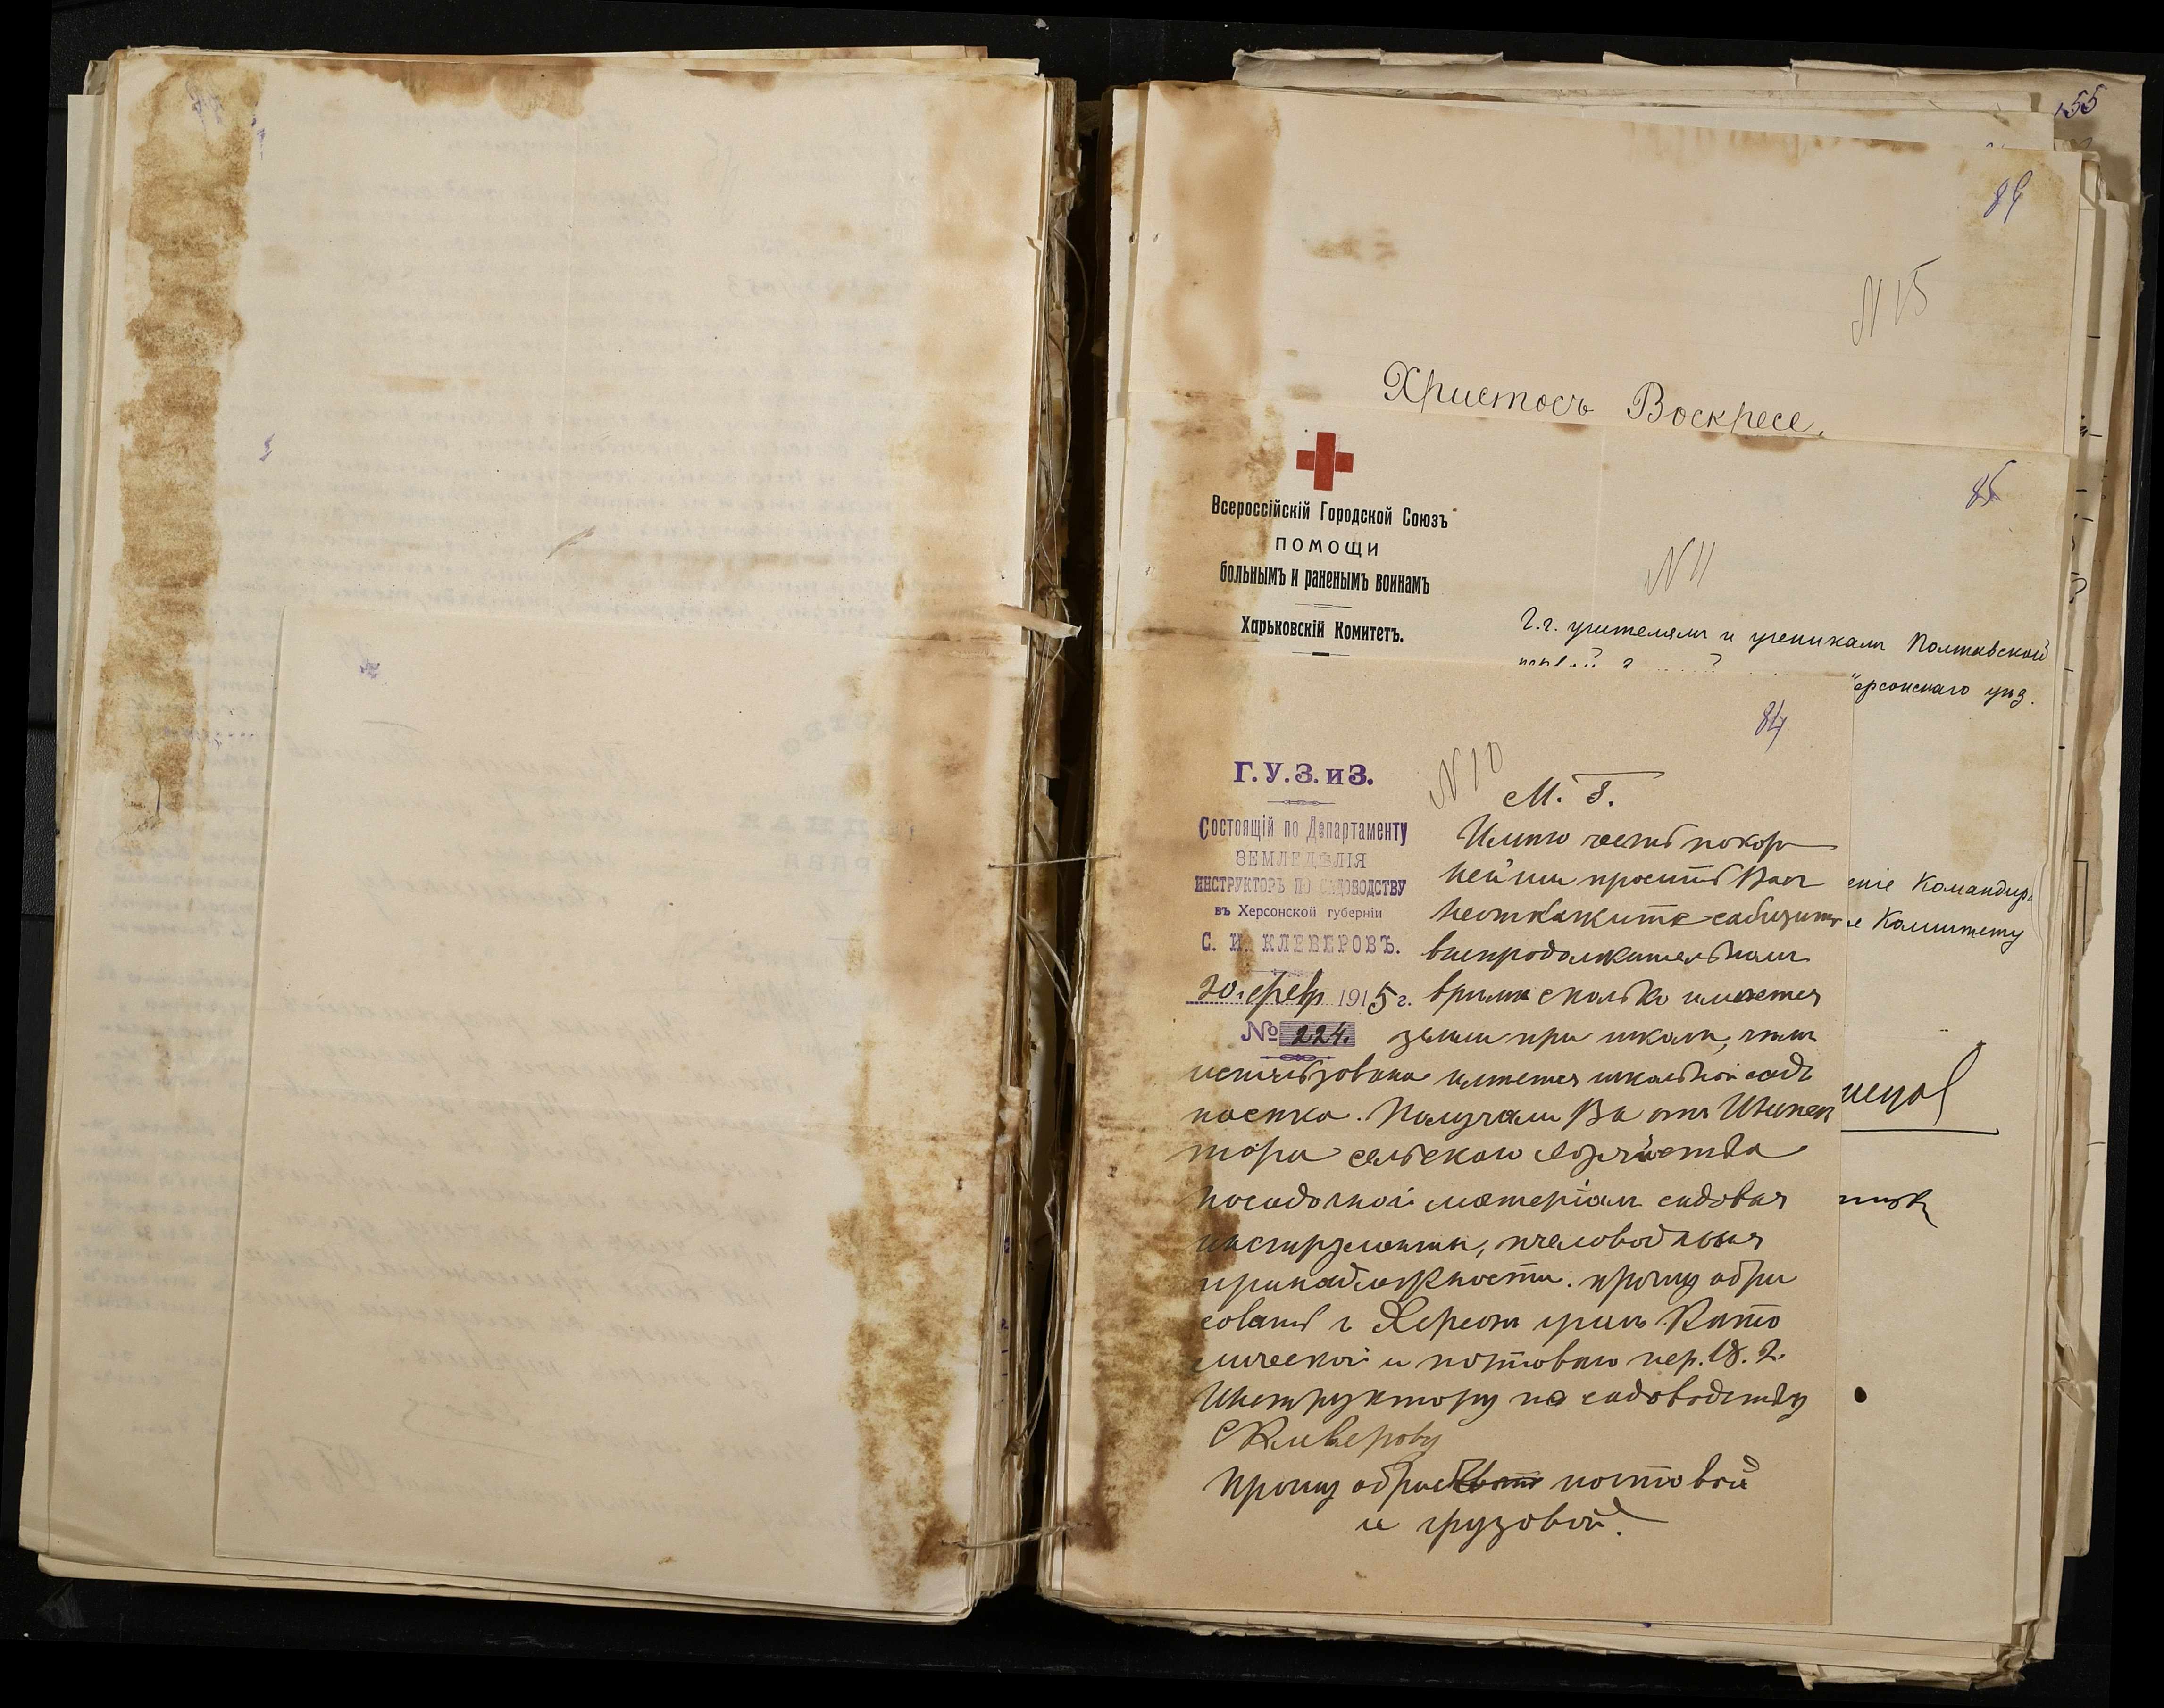 155
86
N 15
Христосъ Воскресе.
85
Всероссійскій Городской Союзъ
ПОМОЩИ
больнымъ и раненымъ воинамъ
Харьковскій Комитетъ.
N 11
Г.г. учителямъ и ученикамъ Полтавской
ерсонскаго уѣз.
84
Г. У. З. и З.
Состоящій по Департаменту
ЗЕМЛЕДѢЛІЯ
ИНСТРУКТОРЪ ПО САДОВОДСТВУ
въ Херсонской губерніи
С. И. КЛЕВЕРОВЪ.
20 февр 1915 г.
№ 224.
N 10
М. Г.
Имѣю честь покор
нейши просить Васъ
неоткажите сабщить
внепродолжительномъ
время сколько имеется
земли при школи, чемъ
использована имеется школьной садъ
посека. Получали Вы отъ Инспек
тора сельскаго хозяйства
посадочной матеріалъ садовыя
инструменты, пчеловодныя
принадлежности. прошу адри
совать г Херсонъ уголъ Като
лической и почтоваго пер. 18. 2.
Инструктору по садоводству
С Клеверову
Прошу адрис почтовой
и грузовой.
еніе Командир
е Комитету